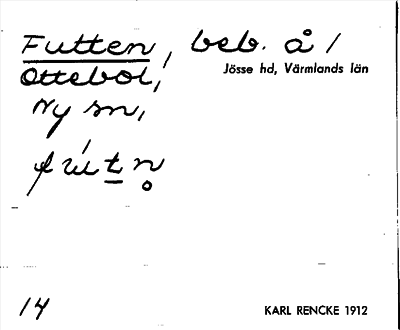 Futten, beb. å /
Ottebol,
Jösse hd, Värmlands län
Ny sn,
fút̲n̥
14
KARL RENCKE 1912